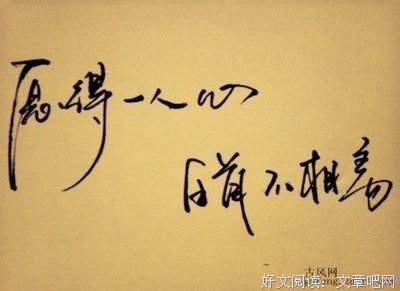 愿得一人心
白首不相离
古风网
好文阅读: 文章吧网